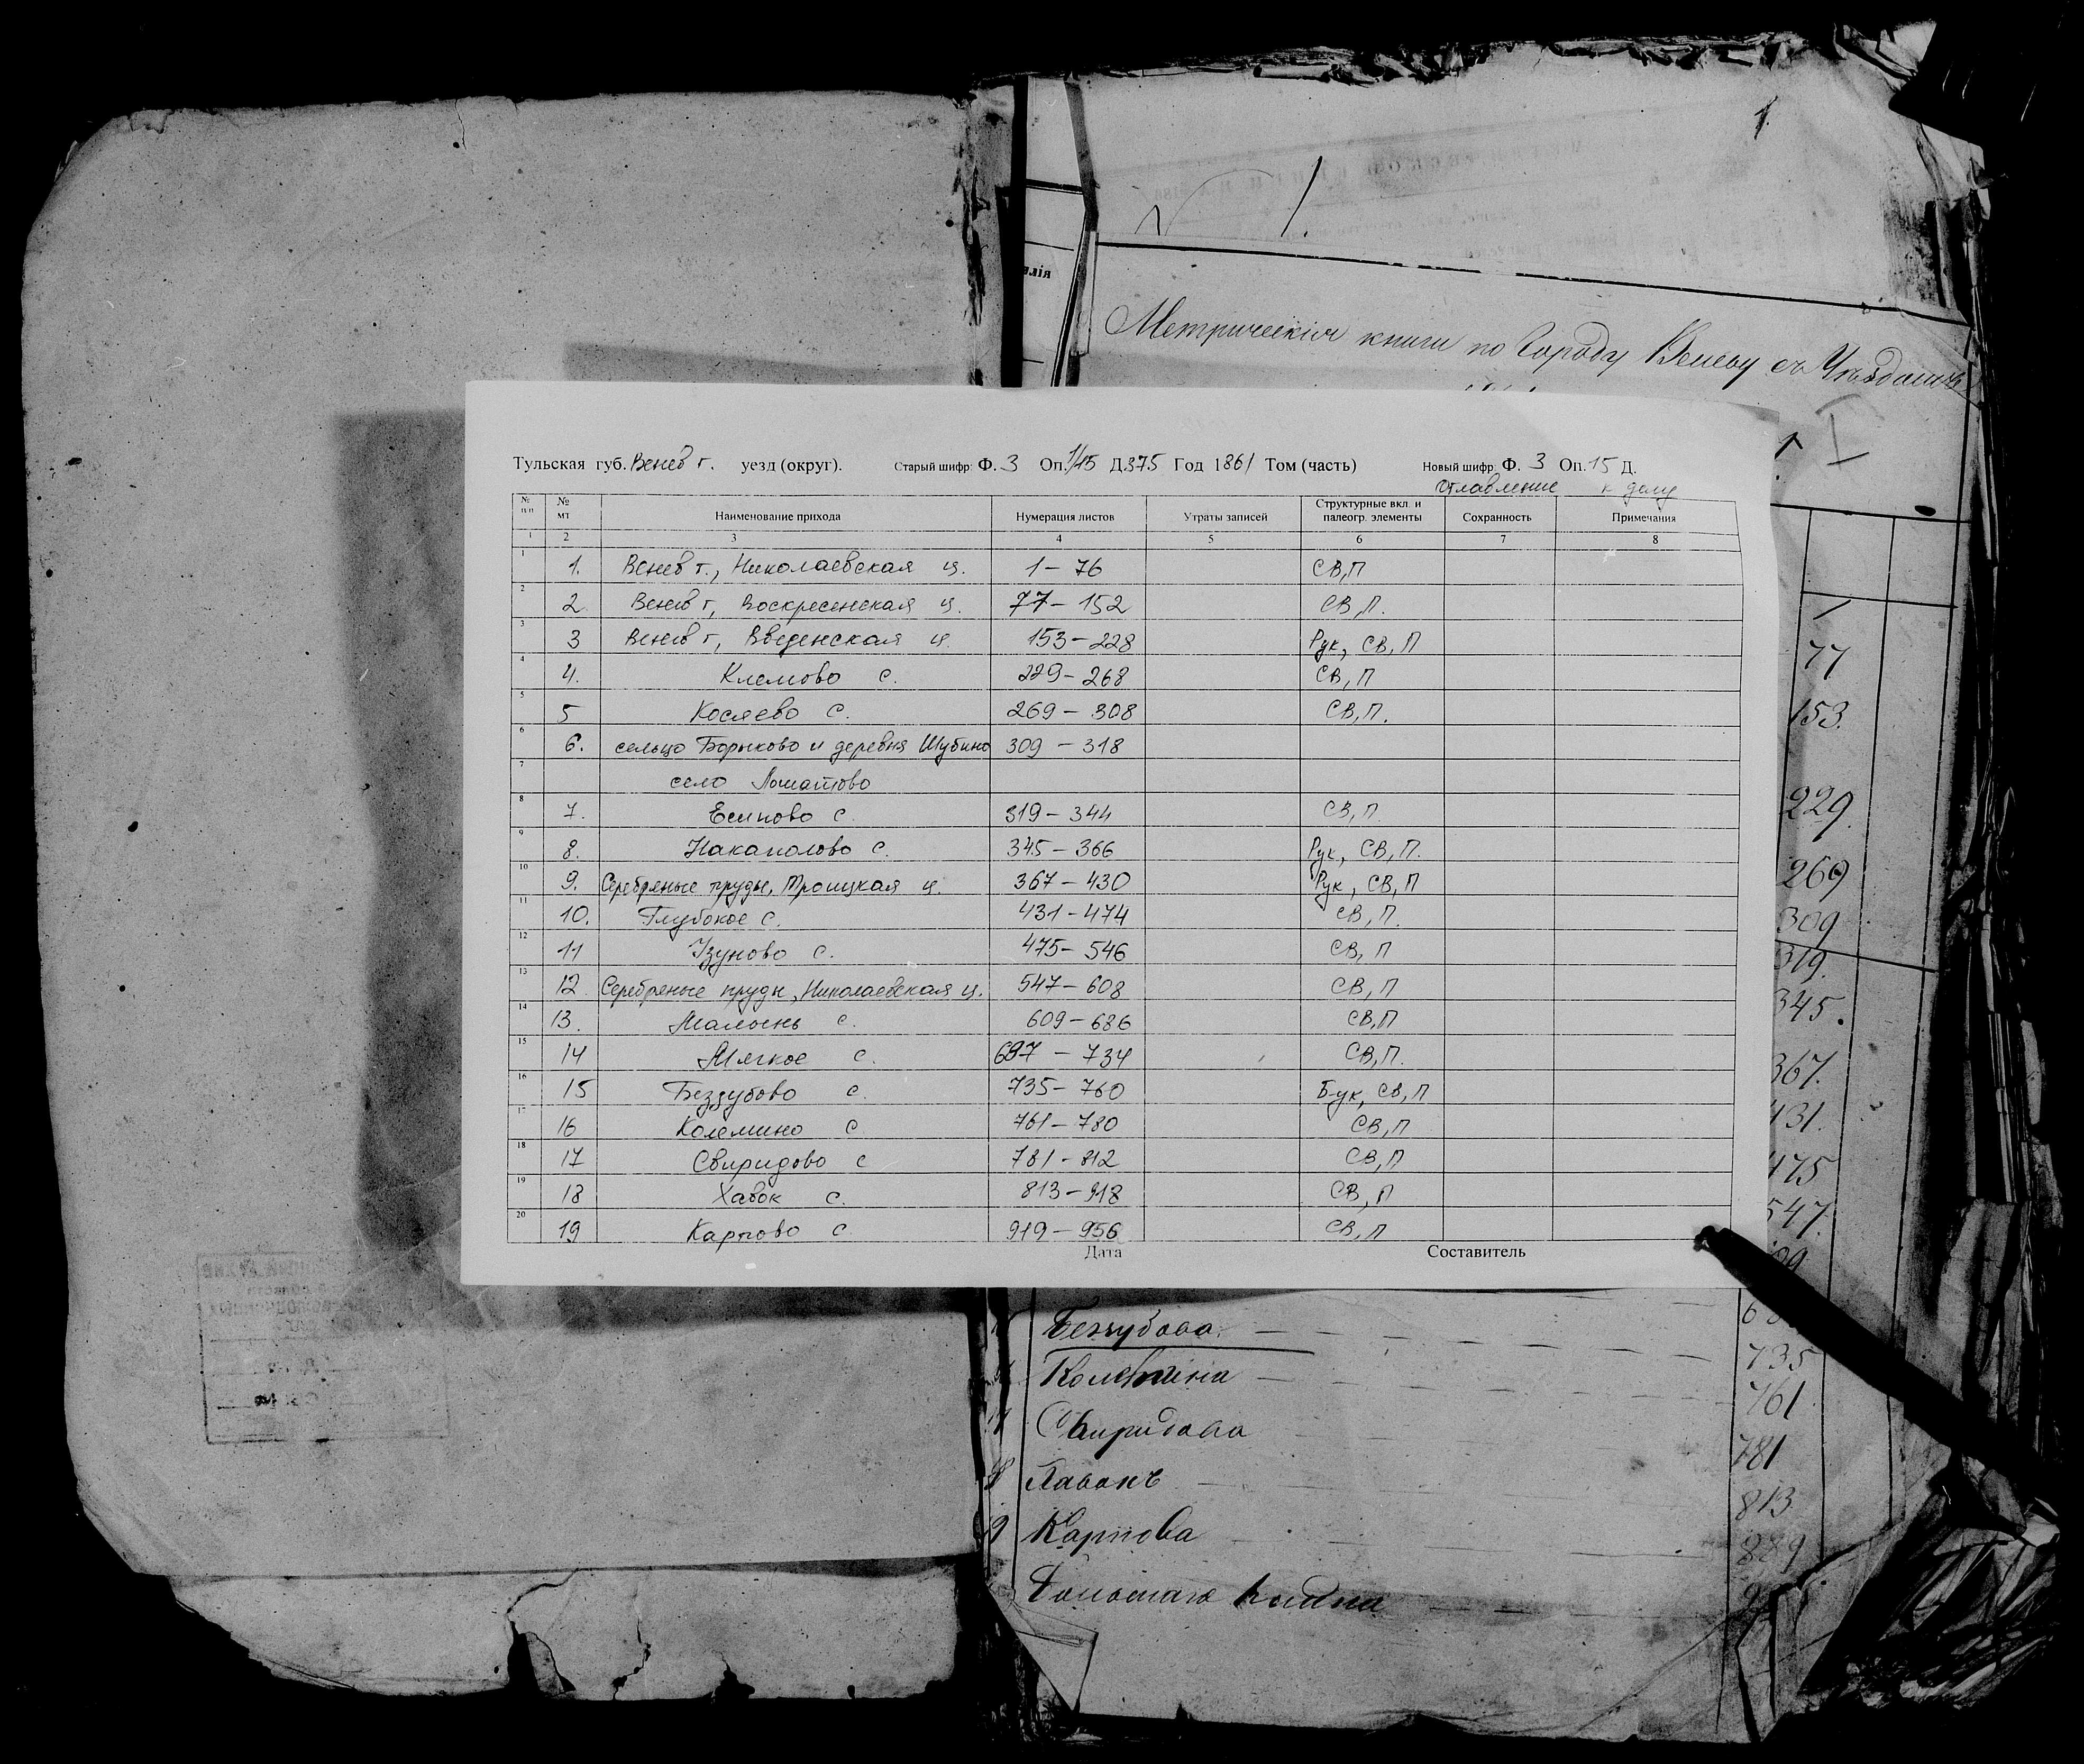 1.
N 1.
Метрическія книги по Городу Веневу съ Уѣздомъ
I
Тульская губ. Венёв г. уезд (округ). Старый шифр: Ф. 3 Оп. 1/15 Д. 375 Год 1861 Том (часть) Новый шифр: Ф. 3 Оп. 15 Д.
Оглавление к делу
№ п/п № мт Наименование прихода Нумерация листов Утраты записей Структурные вкл. и палеогр. элементы Сохранность Примечания
1 2 3 4 5 6 7 8
1 1. Венёв г., Николаевская ц. 1 – 76 СВ,П
2 2 Венёв г, Воскресенская ц. 77 – 152 СВ,П.
3 3 Венёв г, Введенская ц. 153 – 228 Рук, СВ, П
4 4. Клемово с. 229 – 268 СВ, П
5 5 Косяево с. 269 – 308 СВ,П.
6 6. сельцо Борыково и деревня Шубино 309 – 318
7 село Лошатово
8 7. Есипово с. 319 – 344 СВ,П.
9 8. Накаполово с. 345 – 366 Рук, СВ, П.
10 9. Серебряные пруды, Троицкая ц. 367 – 430 Рук, СВ, П
11 10. Глубокое с. 431 – 474 СВ, П.
12 11 Узуново с. 475 – 546 СВ, П
13 12 Серебряные пруды, Николаевская ц. 547 – 608 СВ, П
14 13. Малынь с. 609 – 686 СВ,П
15 14 Мягкое с. 687 – 734 СВ,П.
16 15 Беззубово с. 735 – 760 Б-ук, СВ, П
17 16 Колемино с 761 – 780 СВ,П
18 17 Свиридово с 781 – 812 СВ,П
19 18 Хавок с. 813 – 918 СВ, П
20 19 Карпово с 919 – 956 СВ, П
Дата Составитель
1
77
153.
229.
269
309
319.
345.
367.
431.
475
547.
Беззубова. 735
Колемина 761
Свиридова 781
Хавокъ 813
19 Карпова 889